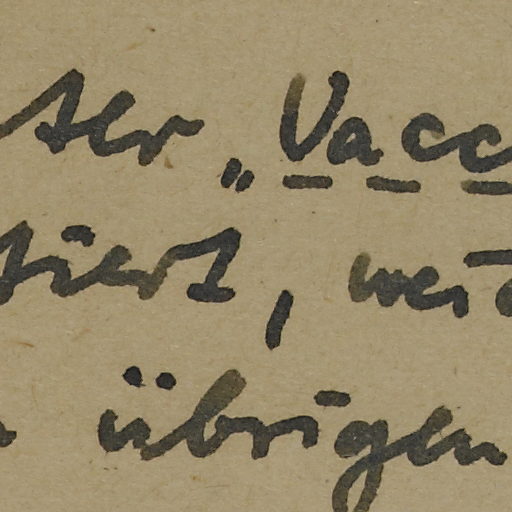 ter „Vacc
tiert, weid
übrigen